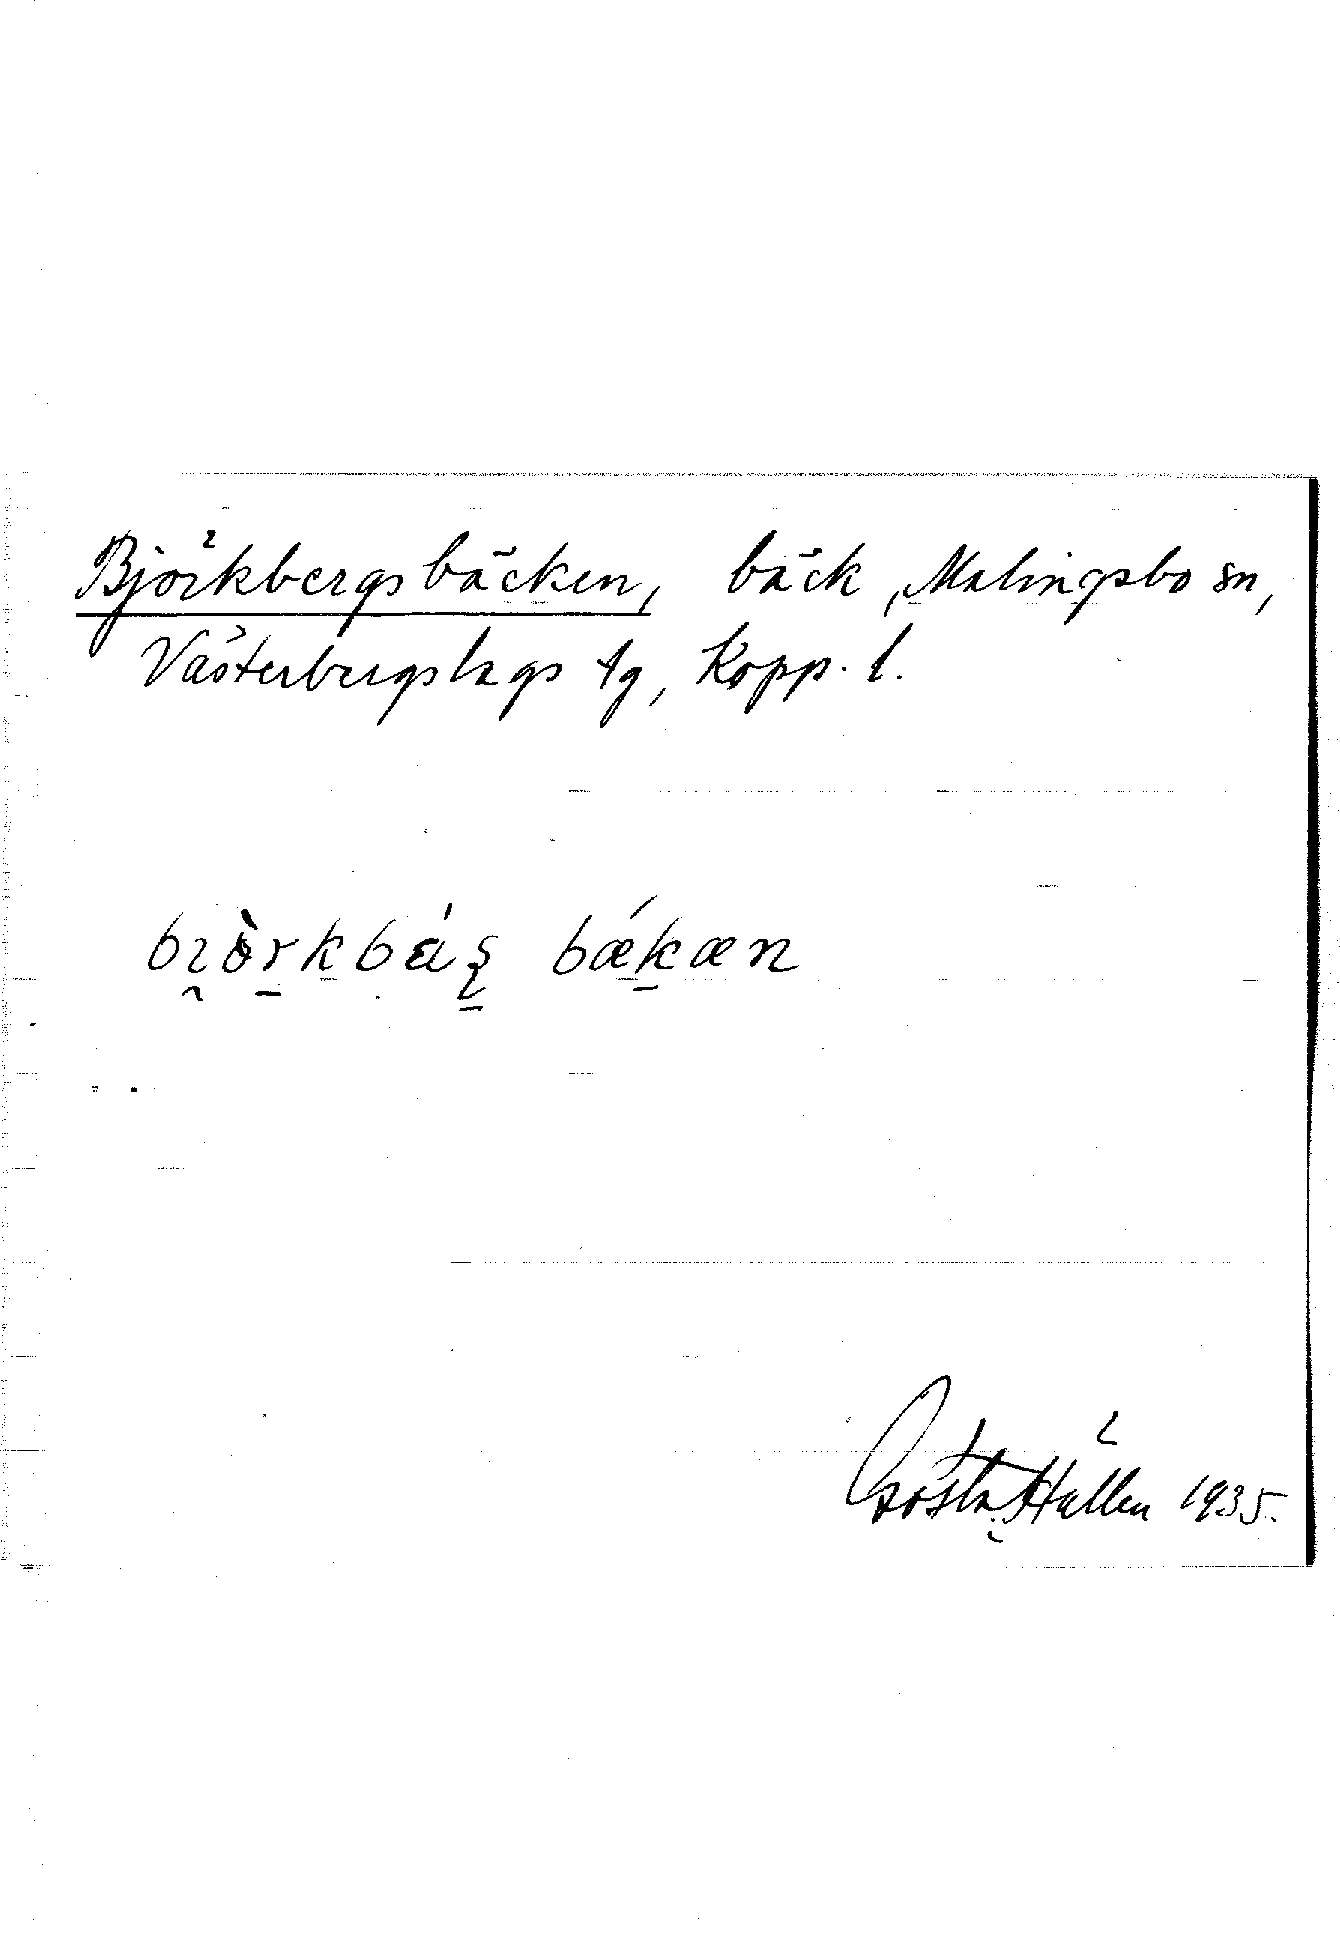 Björkbergsbäcken, bäck, Malingsbo sn,
Västerbergslags tg, Kopp. l.
bäkæn
Gösta Hallen 1935.